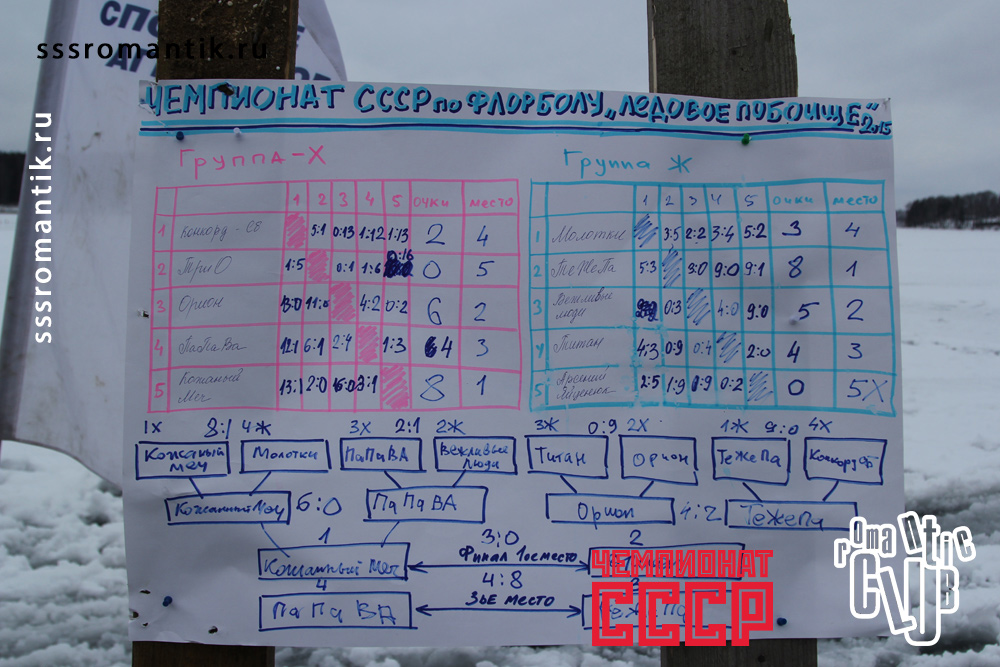 sssromantik.ru
sssromantik.ru
ЧЕМПИОНАТ СССР по ФЛОРБОЛУ „ЛЕДОВОЕ ПОБОИЩЕ“ 2015
Группа-Х
1 2 3 4 5 очки место
1 Конкорд-СБ 5:1 0:13 1:12 1:13 2 4
2 ТриО 1:5 0:1 1:6 0:16 0 5
3 Орион 13:0 11:0 4:2 0:2 6 2
4 ПаПаВа 12:1 6:1 2:4 1:3 4 3
5 Кожаный Меч 13:1 2:0 3:1 8 1
Группа Ж
1 2 3 4 5 очки место
1 Молотки 3:5 2:2 3:4 5:2 3 4
2 ТеЖеПа 5:3 3:0 9:0 9:1 8 1
3 Вежливые люди 0:3 4:0 9:0 5 2
4 Титан 4:3 0:9 0:4 2:0 4 3
5 Арсений Яценюк 2:5 1:9 0:9 0:2 0 5X
1Х 8:1 4Ж 3Х 2:1 2Ж 3Ж 0:9 2Х 1Ж 9:0 4Х
Кожаный меч Молотки ПаПаВА Вежливые Люди Титан Орион ТеЖеПа Конкорд СБ
Кожанный Меч 6:0 ПаПаВА Орион 4:2 ТеЖеПа
1 3:0 2
Кожанный Меч Финал 1ое место
4 4:8 3
ПаПаВА 3ье место
ЧЕМПИОНАТ
СССР
romantic
CLUB